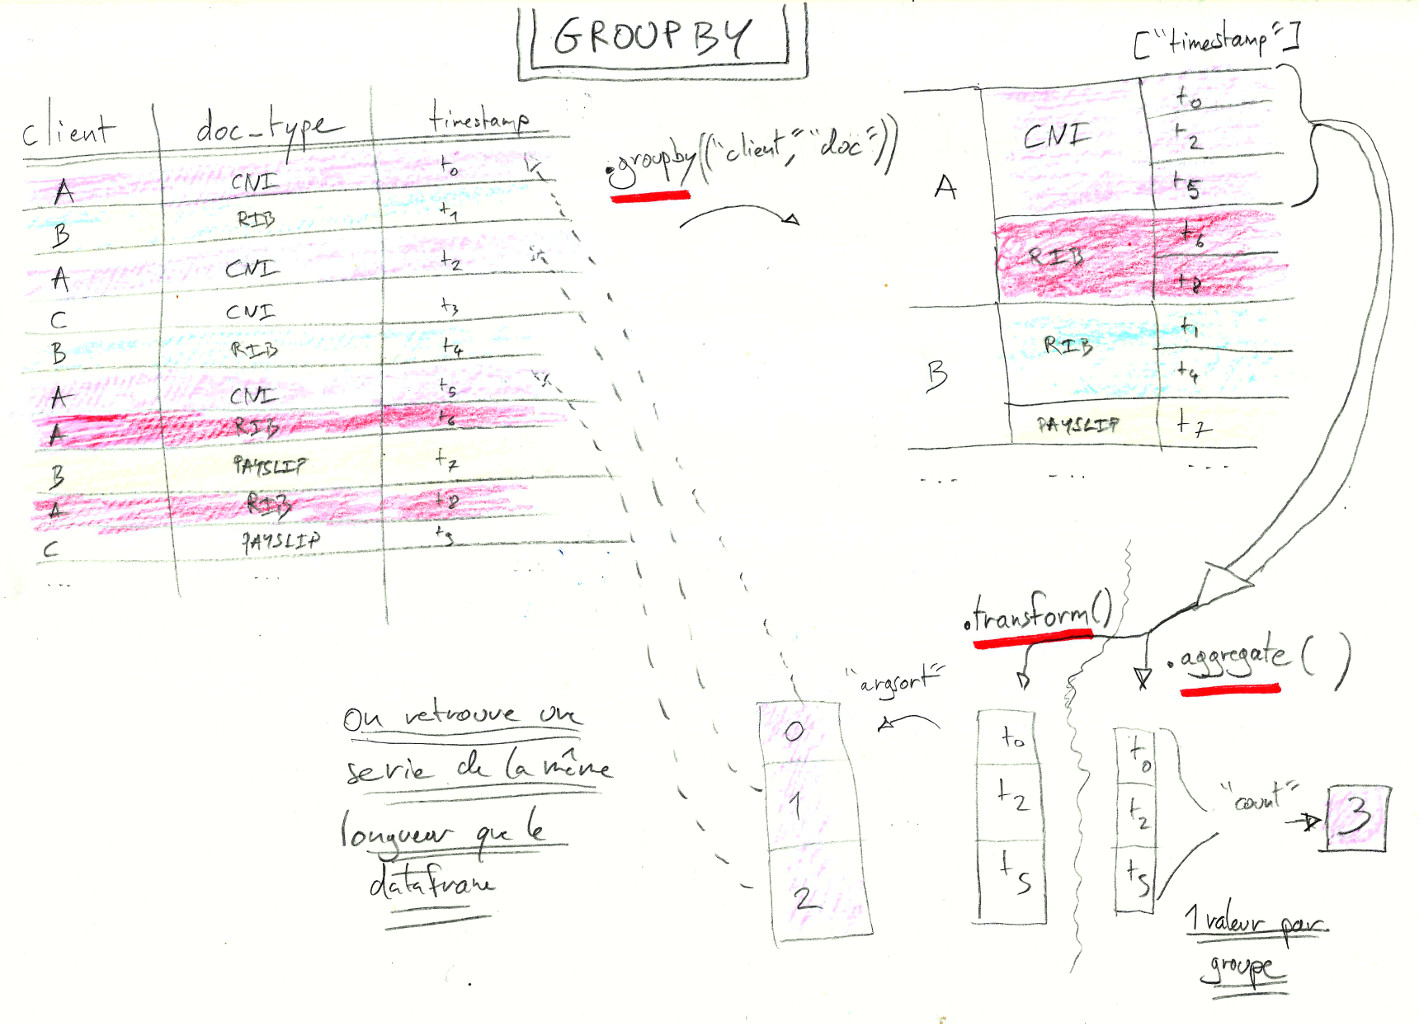 GROUPBY
client doc_type timestamp
A CNI t0
B RIB t1
A CNI t2
C CNI t3
B RIB t4
A CNI t5
A RIB t6
B PAYSLIP t7
A RIB t8
C PAYSLIP t9
... ... ...
.groupby(("client", "doc"))
["timestamp"]
A CNI t0
t2
t5
RIB t6
t8
B RIB t1
t4
PAYSLIP t7
... ... ...
.transform()
.aggregate()
"argsort"
0
1
2
t0
t2
t5
t0
t2
t5
"count"
3
On retrouve une
serie de la même
longueur que le
dataframe
1 valeur par
groupe